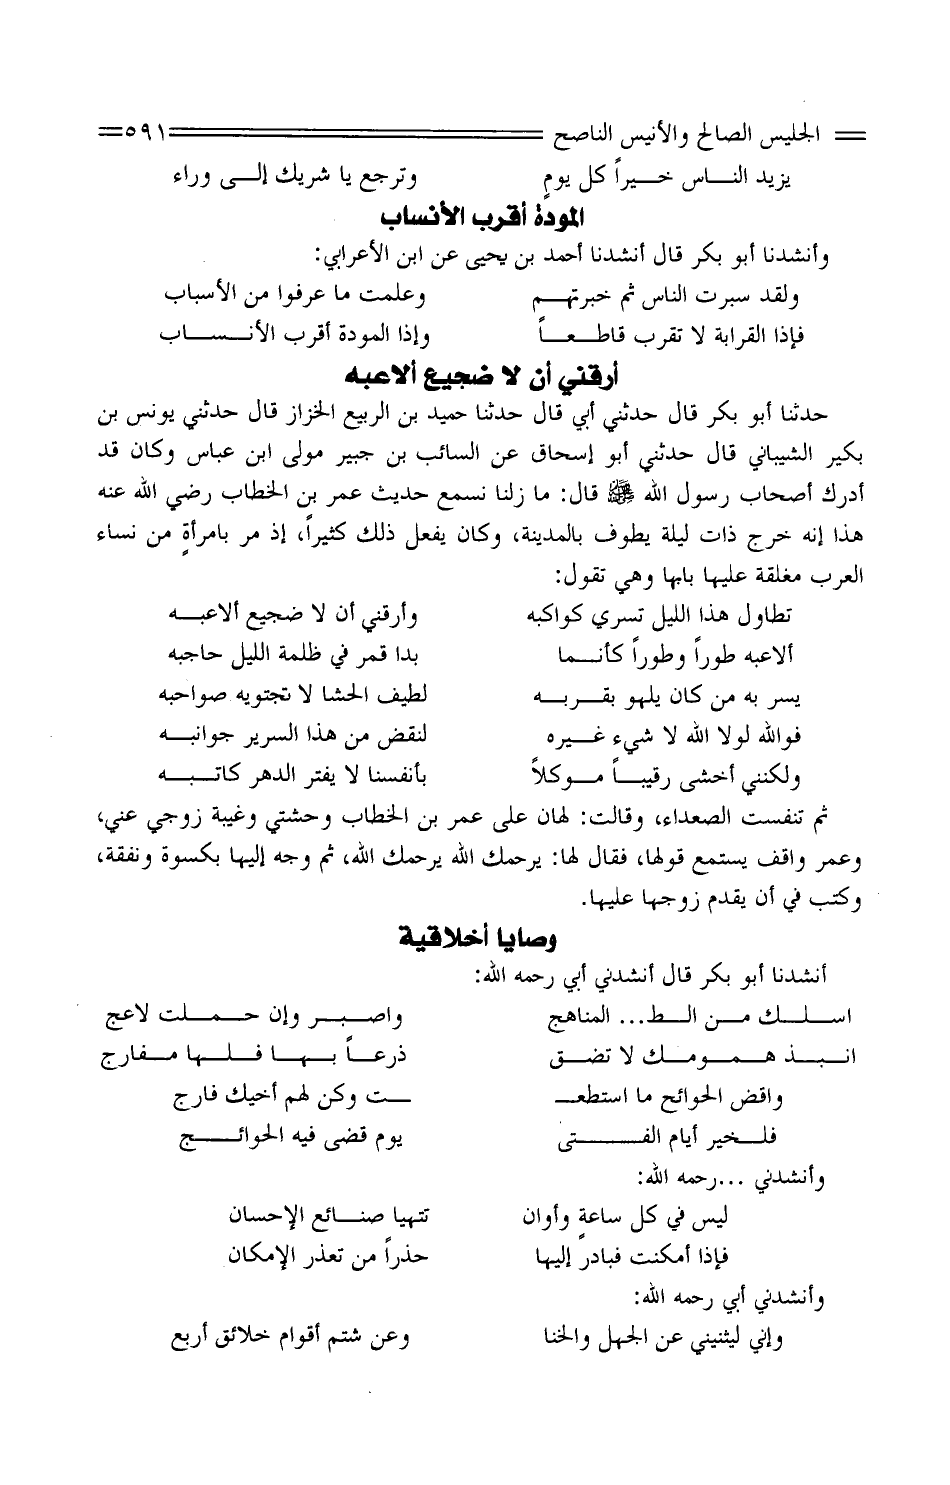 الجليس الصالح والأنيس الناصح ٥٩١
يزيد النـــاس خـــيراً كل يومٍ وترجع يا شريك إلـــى وراء
المودة أقرب الأنساب
وأنشدنا أبو بكر قال أنشدنا أحمد بن يحيى عن ابن الأعرابي:
ولقد سبرت الناس ثم خبرتهـــم وعلمت ما عرفوا من الأسباب
فإذا القرابة لا تقرب قاطـــعـــاً وإذا المودة أقرب الأنـــســـاب
أرقني أن لا ضجيع ألاعبه
حدثنا أبو بكر قال حدثني أبي قال حدثنا حميد بن الربيع الخزاز قال حدثني يونس بن
بكير الشيباني قال حدثني أبو إسحاق عن السائب بن جبير مولى ابن عباس وكان قد
أدرك أصحاب رسول الله ﷺ قال: ما زلنا نسمع حديث عمر بن الخطاب رضي الله عنه
هذا إنه خرج ذات ليلة يطوف بالمدينة، وكان يفعل ذلك كثيراً، إذ مر بامرأةٍ من نساء
العرب مغلقة عليها بابها وهي تقول:
تطاول هذا الليل تسري كواكبه وأرقني أن لا ضجيع ألاعبـــه
ألاعبه طوراً وطوراً كأنـــما بدا قمر في ظلمة الليل حاجبه
يسر به من كان يلهو بقـــربـــه لطيف الحشا لا تجتويه صواحبه
فوالله لولا الله لا شيء غـــيره لنقض من هذا السرير جوانبـــه
ولكنني أخشى رقيبـــاً مـــوكلاً بأنفسنا لا يفتر الدهر كاتـــبـــه
ثم تنفست الصعداء، وقالت: لهان على عمر بن الخطاب وحشتي وغيبة زوجي عني،
وعمر واقف يستمع قولها، فقال لها: يرحمك الله يرحمك الله، ثم وجه إليها بكسوة ونفقة،
وكتب في أن يقدم زوجها عليها.
وصايا أخلاقية
أنشدنا أبو بكر قال أنشدني أبي رحمه الله:
اســـلـــك مـــن الـــط... المناهج واصـــبـــر وإن حـــمـــلت لاعج
انـــبـــذ هـــمـــومـــك لا تضـــق ذرعـــاً بـــهـــا فـــلـــها مـــفارج
واقض الحوائج ما استطعـــ ـــت وكن لهم أخيك فارج
فلـــخير أيام الفـــتى يوم قضى فيه الحوائـــج
وأنشدني ...رحمه الله:
ليس في كل ساعةٍ وأوان تتهيا صنـــائع الإحسان
فإذا أمكنت فبادر إليها حذراً من تعذر الإمكان
وأنشدني أبي رحمه الله:
وإني ليثنيني عن الجهل والخنا وعن شتم أقوام خلائق أربع